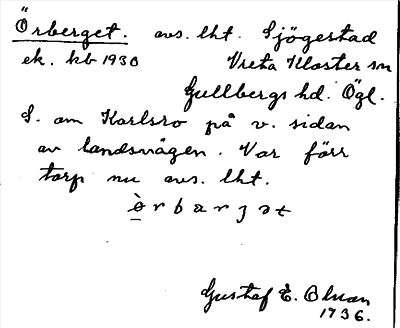 Örberget. avs. lht. Sjögestad
ek. kb 1930 Vreta Kloster sn
Gullbergs hd. Ögl.
S. om Karlsro på v. sidan
av landsvägen. Var förr
torp nu avs. lht.
Gustaf E. Olsson
1936.